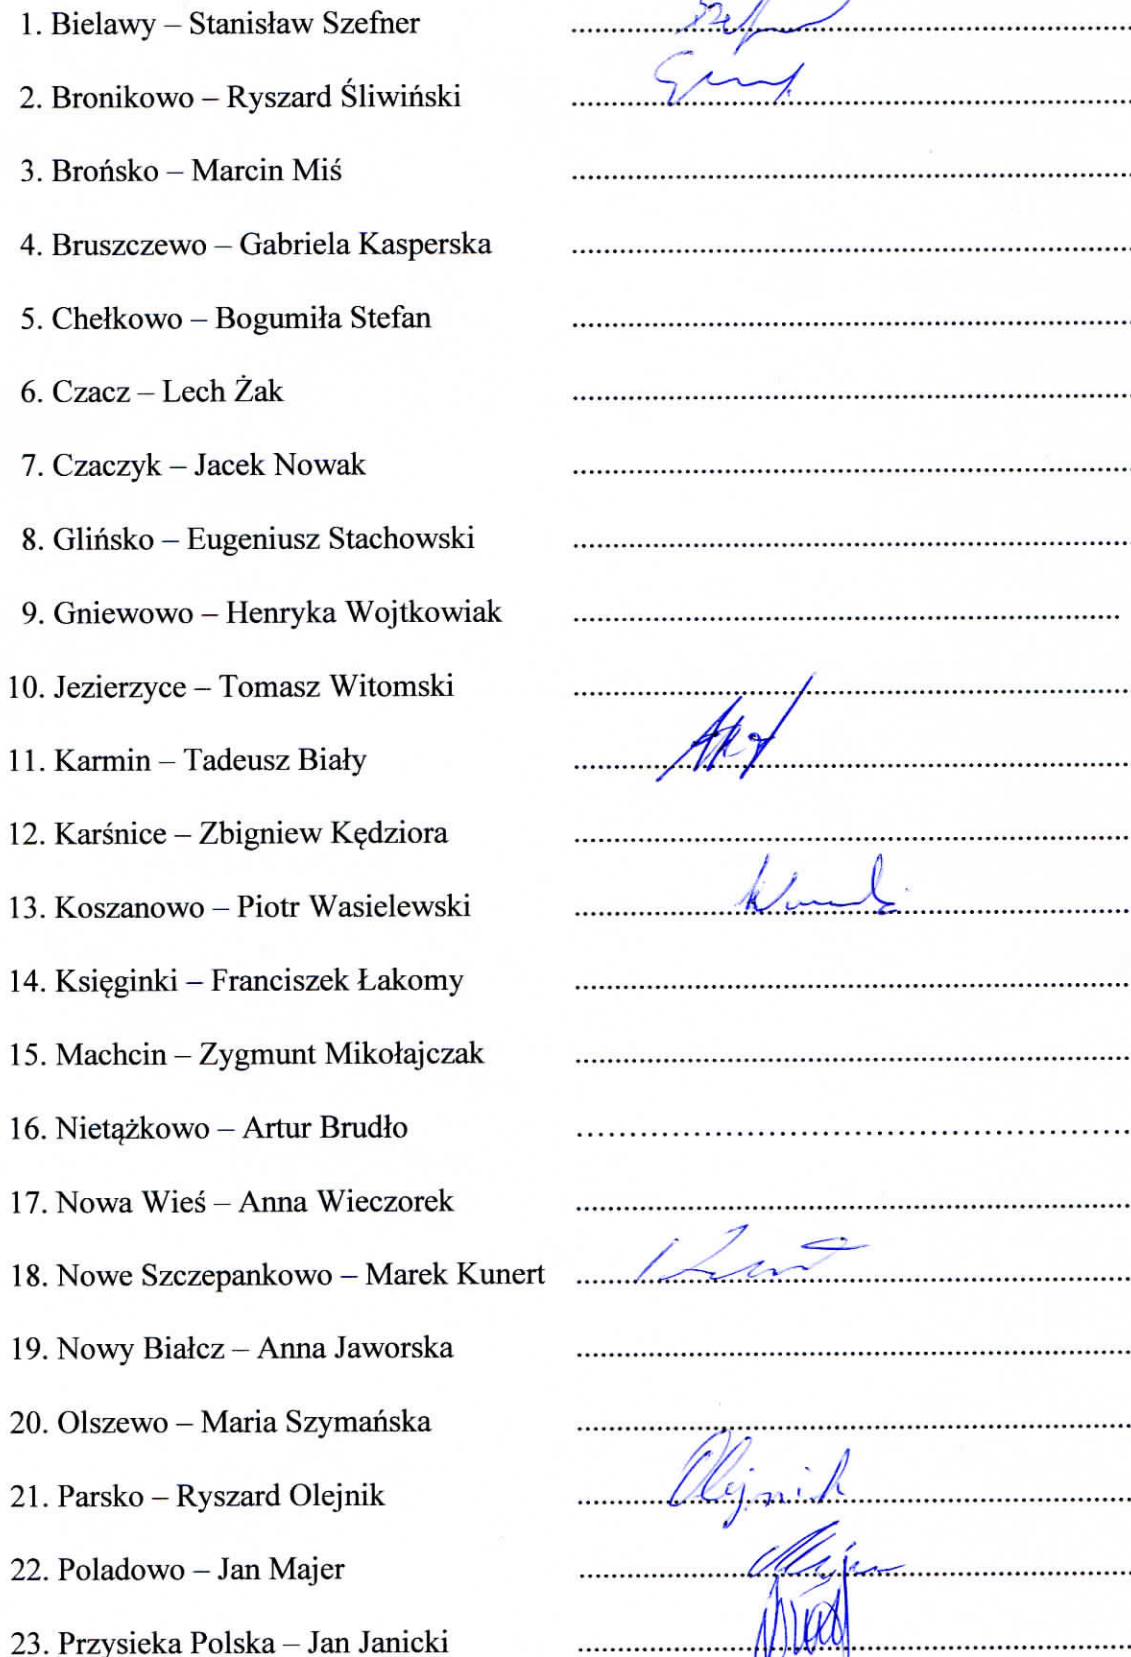 1. Bielawy – Stanisław Szefner ........................................
2. Bronikowo – Ryszard Śliwiński ........................................
3. Brońsko – Marcin Miś ........................................
4. Bruszczewo – Gabriela Kasperska ........................................
5. Chełkowo – Bogumiła Stefan ........................................
6. Czacz – Lech Żak ........................................
7. Czaczyk – Jacek Nowak ........................................
8. Glińsko – Eugeniusz Stachowski ........................................
9. Gniewowo – Henryka Wojtkowiak ........................................
10. Jezierzyce – Tomasz Witomski ........................................
11. Karmin – Tadeusz Biały ........................................
12. Karśnice – Zbigniew Kędziora ........................................
13. Koszanowo – Piotr Wasielewski ........................................
14. Księginki – Franciszek Łakomy ........................................
15. Machcin – Zygmunt Mikołajczak ........................................
16. Nietążkowo – Artur Brudło ........................................
17. Nowa Wieś – Anna Wieczorek ........................................
18. Nowe Szczepankowo – Marek Kunert ........................................
19. Nowy Białcz – Anna Jaworska ........................................
20. Olszewo – Maria Szymańska ........................................
21. Parsko – Ryszard Olejnik Olejnik
22. Poladowo – Jan Majer ........................................
23. Przysieka Polska – Jan Janicki ........................................